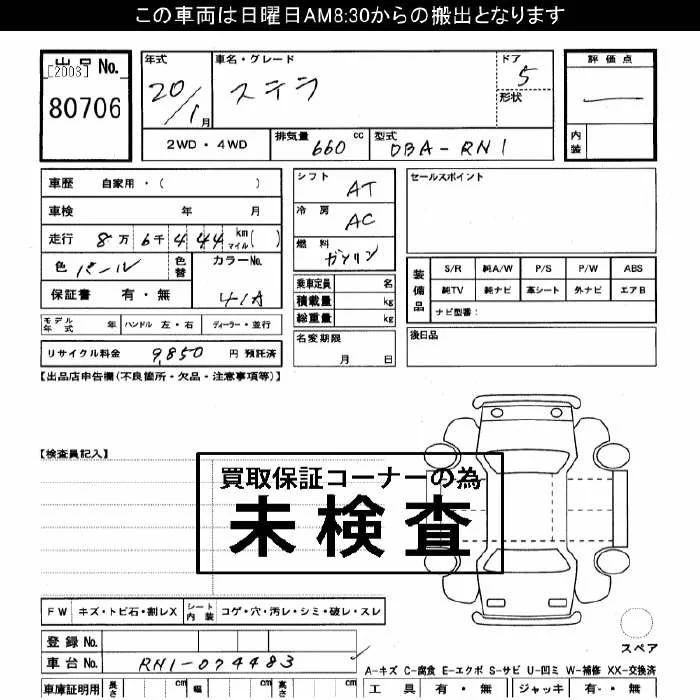 この車両は日曜日AM8:30からの搬出となります
出品No. [2003] 80706
年式 20/1月
車名・グレード ステラ
ドア 5
形状
評価点 —
内装
2WD・4WD
排気量 660 cc
型式 DBA-RN1
車歴 自家用・( )
車検 年 月
走行 8万 6千 4 44 km マイル( )
色 パール 色替 カラーNo. 41A
保証書 有・無
モデル年式 年 ハンドル 左・右 ディーラー・並行
リサイクル料金 9,850 円 預託済
シフト AT
冷房 AC
燃料 ガソリン
乗車定員 名
積載量 kg
総重量 kg
名変期限 月 日
セールスポイント
装備品 S/R 純A/W P/S P/W ABS
純TV 純ナビ 革シート 外ナビ エアB
ナビ型番:
後日品
【出品店申告欄(不良箇所・欠品・注意事項等)】
【検査員記入】
買取保証コーナーの為
未検査
FW キズ・トビ石・割レX シート内装 コゲ・穴・汚レ・シミ・破レ・スレ
登録No.
車台No. RN1-074483
スペア
A-キズ C-腐食 E-エクボ S-サビ U-凹ミ W-補修 XX-交換済
車庫証明用 長さ cm 幅 cm 高さ cm
工具 有・無 ジャッキ 有・無